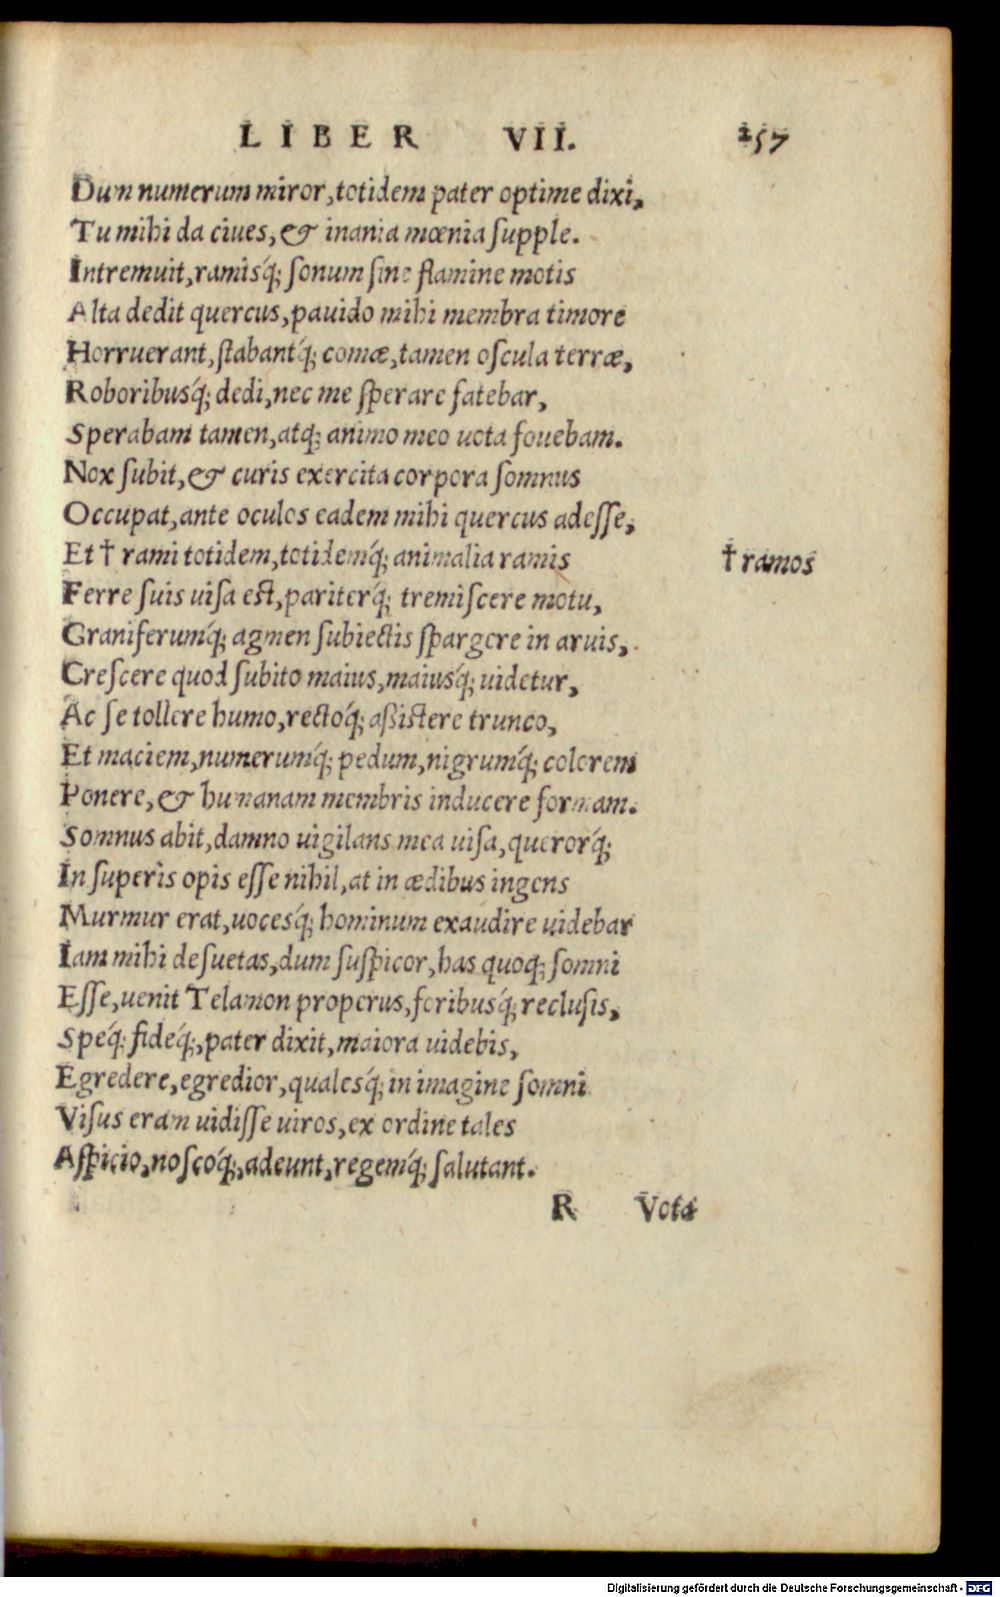 LIBER VII. 257
Dum numerum miror, totidem pater optime dixi,
Tu mihi da ciues, & inania mœnia supple.
Intremuit, ramisq́; sonum sine flamine motis
Alta dedit quercus, pauido mihi membra timore
Horruerant, stabantq́; comæ, tamen oscula terræ,
Roboribusq́; dedi, nec me sperare fatebar,
Sperabam tamen, atq; animo meo uota fouebam.
Nox subit, & curis exercita corpora somnus
Occupat, ante oculos eadem mihi quercus adesse,
Et † rami totidem, totidemq́; animalia ramis †ramos
Ferre suis uisa est, pariterq́; tremiscere motu,
Graniferumq́; agmen subiectis spargere in aruis,
Crescere quod subito maius, maiusq́; uidetur,
Ac se tollere humo, rectoq́; assistere trunco,
Et maciem, numerumq́; pedum, nigrumq́; colorem
Ponere, & humanam membris inducere formam.
Somnus abit, damno uigilans mea uisa, querorq́;
In superìs opis esse nihil, at in ædibus ingens
Murmur erat, uocesq́; hominum exaudire uidebar
Iam mihi desuetas, dum suspicor, has quoq; somni
Esse, uenit Telamon properus, foribusq́; reclusis,
Speq́; fideq́;, pater dixit, maiora uidebis,
Egredere, egredior, qualesq́; in imagine somni
Visus eram uidisse uiros, ex ordine tales
Aspicio, noscoq́;, adeunt, regemq́; salutant.
R Vota
Digitalisierung gefördert durch die Deutsche Forschungsgemeinschaft - DFG